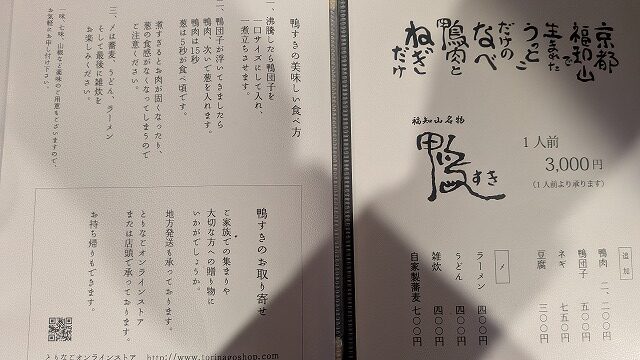 京都
福知山で
生まれた
うっとこ
だけの
なべ
鴨肉と
ねぎだけ
福知山名物
鴨すき
1人前
3,000円
(1人前より承ります)
追加
鴨肉 二、二〇〇円
鴨団子 七五〇円
ネギ 五五〇円
豆腐 三〇〇円
〆
ラーメン 四〇〇円
うどん 四〇〇円
雑炊 四〇〇円
自家製蕎麦 七〇〇円
鴨すきの美味しい食べ方
一、沸騰したら鴨団子を
一口サイズにして入れ、
一煮立ちさせます。
二、鴨団子が浮いてきましたら
鴨肉、次いで葱を入れます。
鴨肉は15秒
葱は5秒が食べ頃です。
煮すぎるとお肉が固くなったり、
葱の食感がなくなってしまうので
ご注意ください。
三、〆は蕎麦、うどん、ラーメン
そして最後に雑炊を
お楽しみください。
一味、七味、山椒など薬味のご用意もございますので、
お気軽にお申し付け下さい。
鴨すきのお取り寄せ
ご家族での集まりや
大切な方への贈り物に
いかがでしょうか。
地方発送も承っております。
とりなごオンラインストア
または店頭で承っております。
お持ち帰りもできます。
とりなごオンラインストア http://www.torinagoshop.com